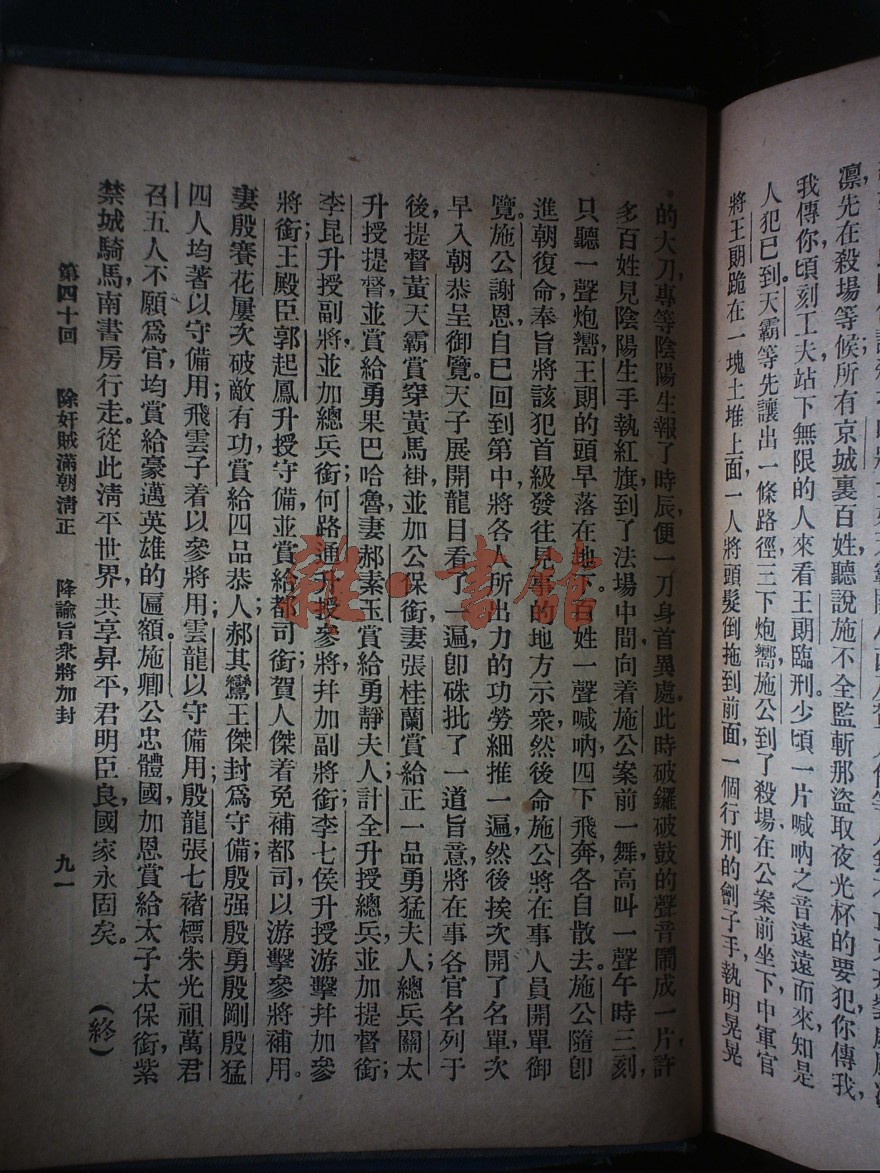 凛先在殺場等候所有京城裏百姓聽說施不全監斬那盜取夜光杯的要犯你傳我
我傳你頃刻工夫站下無限的人來看王朗臨刑少頃一片喊吶之音遠遠而來知是
人犯已到天霸等先讓出一條路徑三下炮嚮施公到了殺場在公案前坐下中軍官
將王朗跪在一塊土堆上面一人將頭髮倒拖到前面一個行刑的劊子手執明晃晃
的大刀專等陰陽生報了時辰便一刀身首異處此時破鑼破鼓的聲音鬧成一片許
多百姓見陰陽生手執紅旗到了法場中間向着施公案前一舞高叫一聲午時三刻
只聽一聲炮嚮王朗的頭早落在地下百姓一聲喊吶四下飛奔各自散去施公隨卽
進朝復命奉旨將該犯首級發往見事的地方示衆然後命施公將在事人員開單御
覽施公謝恩自已回到第中將各人所出力的功勞細推一遍然後挨次開了名單次
早入朝恭呈御覽天子展開龍目看了一遍卽硃批了一道旨意將在事各官名列于
後提督黃天霸賞穿黃馬褂並加公保銜妻張桂蘭賞給正一品勇猛夫人總兵關太
升授提督並賞給勇果巴哈魯妻郝素玉賞給勇靜夫人計全升授總兵並加提督銜
李昆升授副將並加總兵銜何路通升授參將幷加副將銜李七侯升授游擊幷加參
將銜王殿臣郭起鳳升授守備並賞給都司銜賀人傑着免補都司以游擊參將補用
妻殷賽花屢次破敵有功賞給四品恭人郝其鸞王傑封爲守備殷强殷勇殷剛殷猛
四人均著以守備用飛雲子着以參將用雲龍以守備用殷龍張七褚標朱光祖萬君
召五人不願爲官均賞給豪邁英雄的匾額施卿公忠體國加恩賞給太子太保銜紫
禁城騎馬南書房行走從此淸平世界共享昇平君明臣良國家永固矣。（終）
第四十回　除奸賊滿朝淸正　降諭旨衆將加封　九一
雜·書館